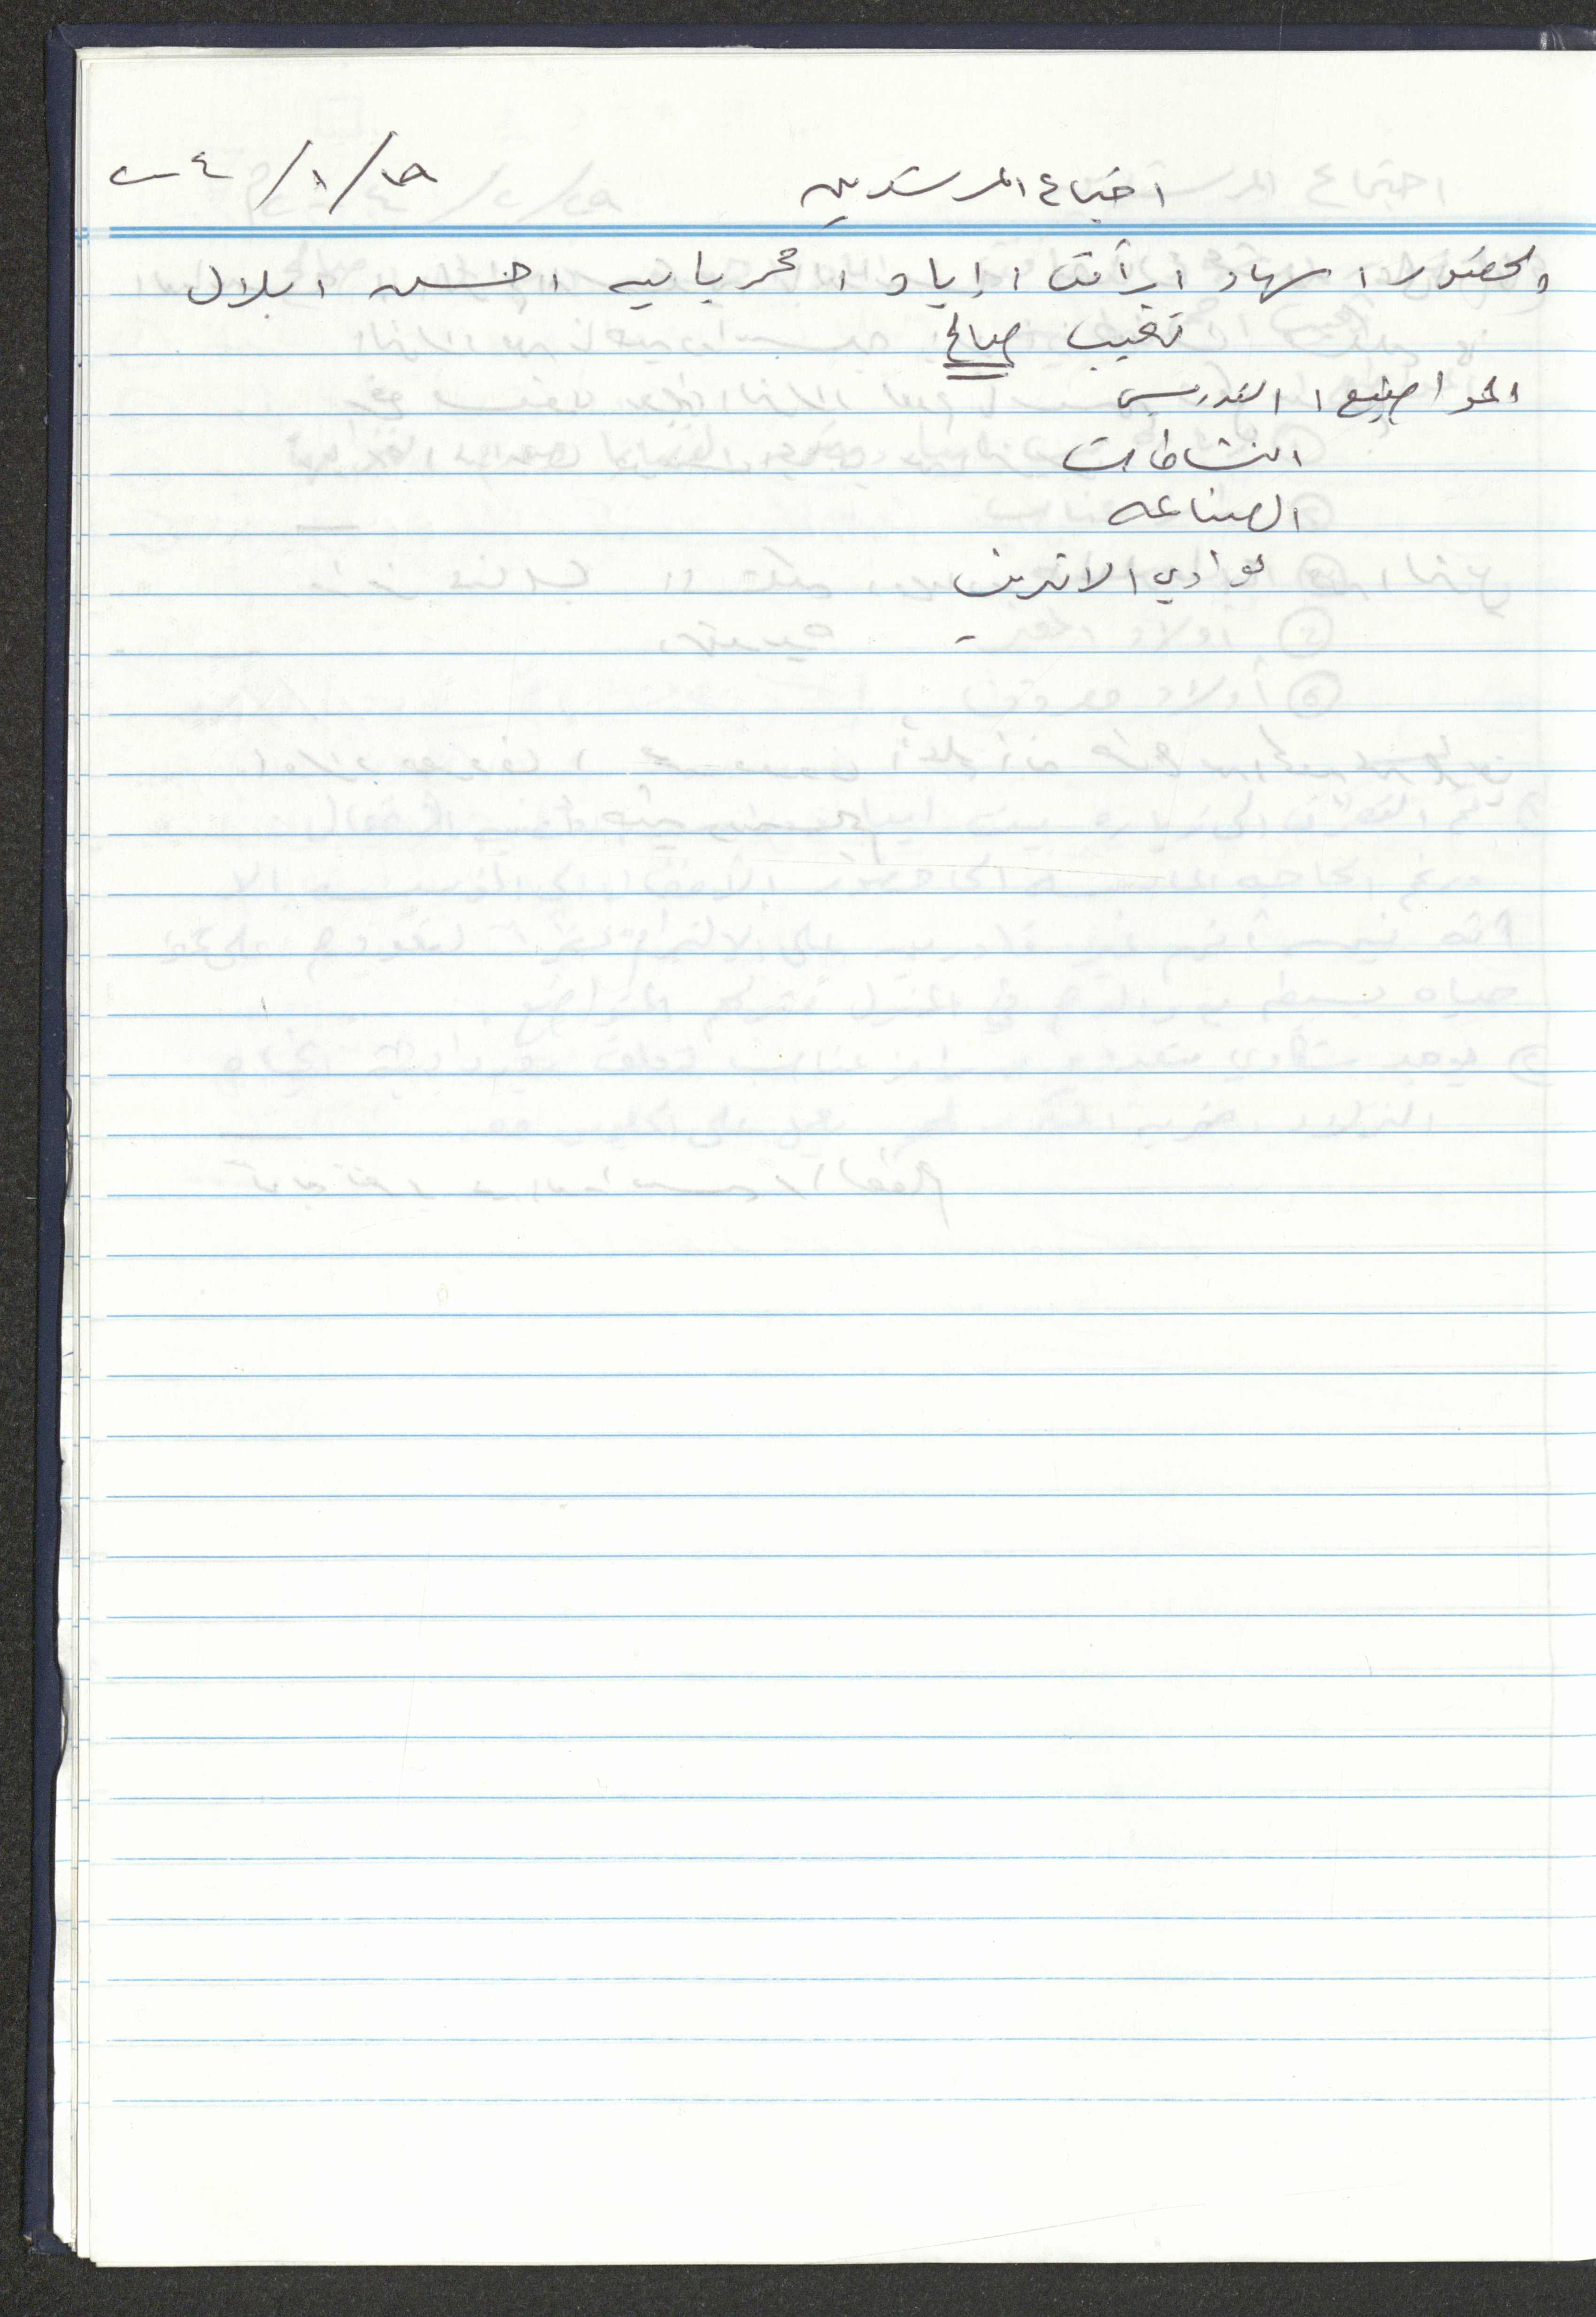 اجتماع المرشدين ١٨/١/٢٠٠٤
الحضور / سهاد / رأفت / إياد / محمد بانيه / حسن / بلال
تغيب صالح
المواضيع / التدريس
النشاطات
الصناعه
نوادي الانترنت